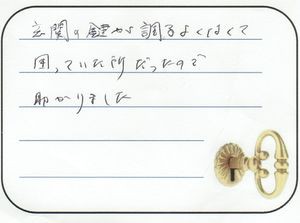 玄関の鍵が調子よくなくて
困っていた所だったので
助かりました